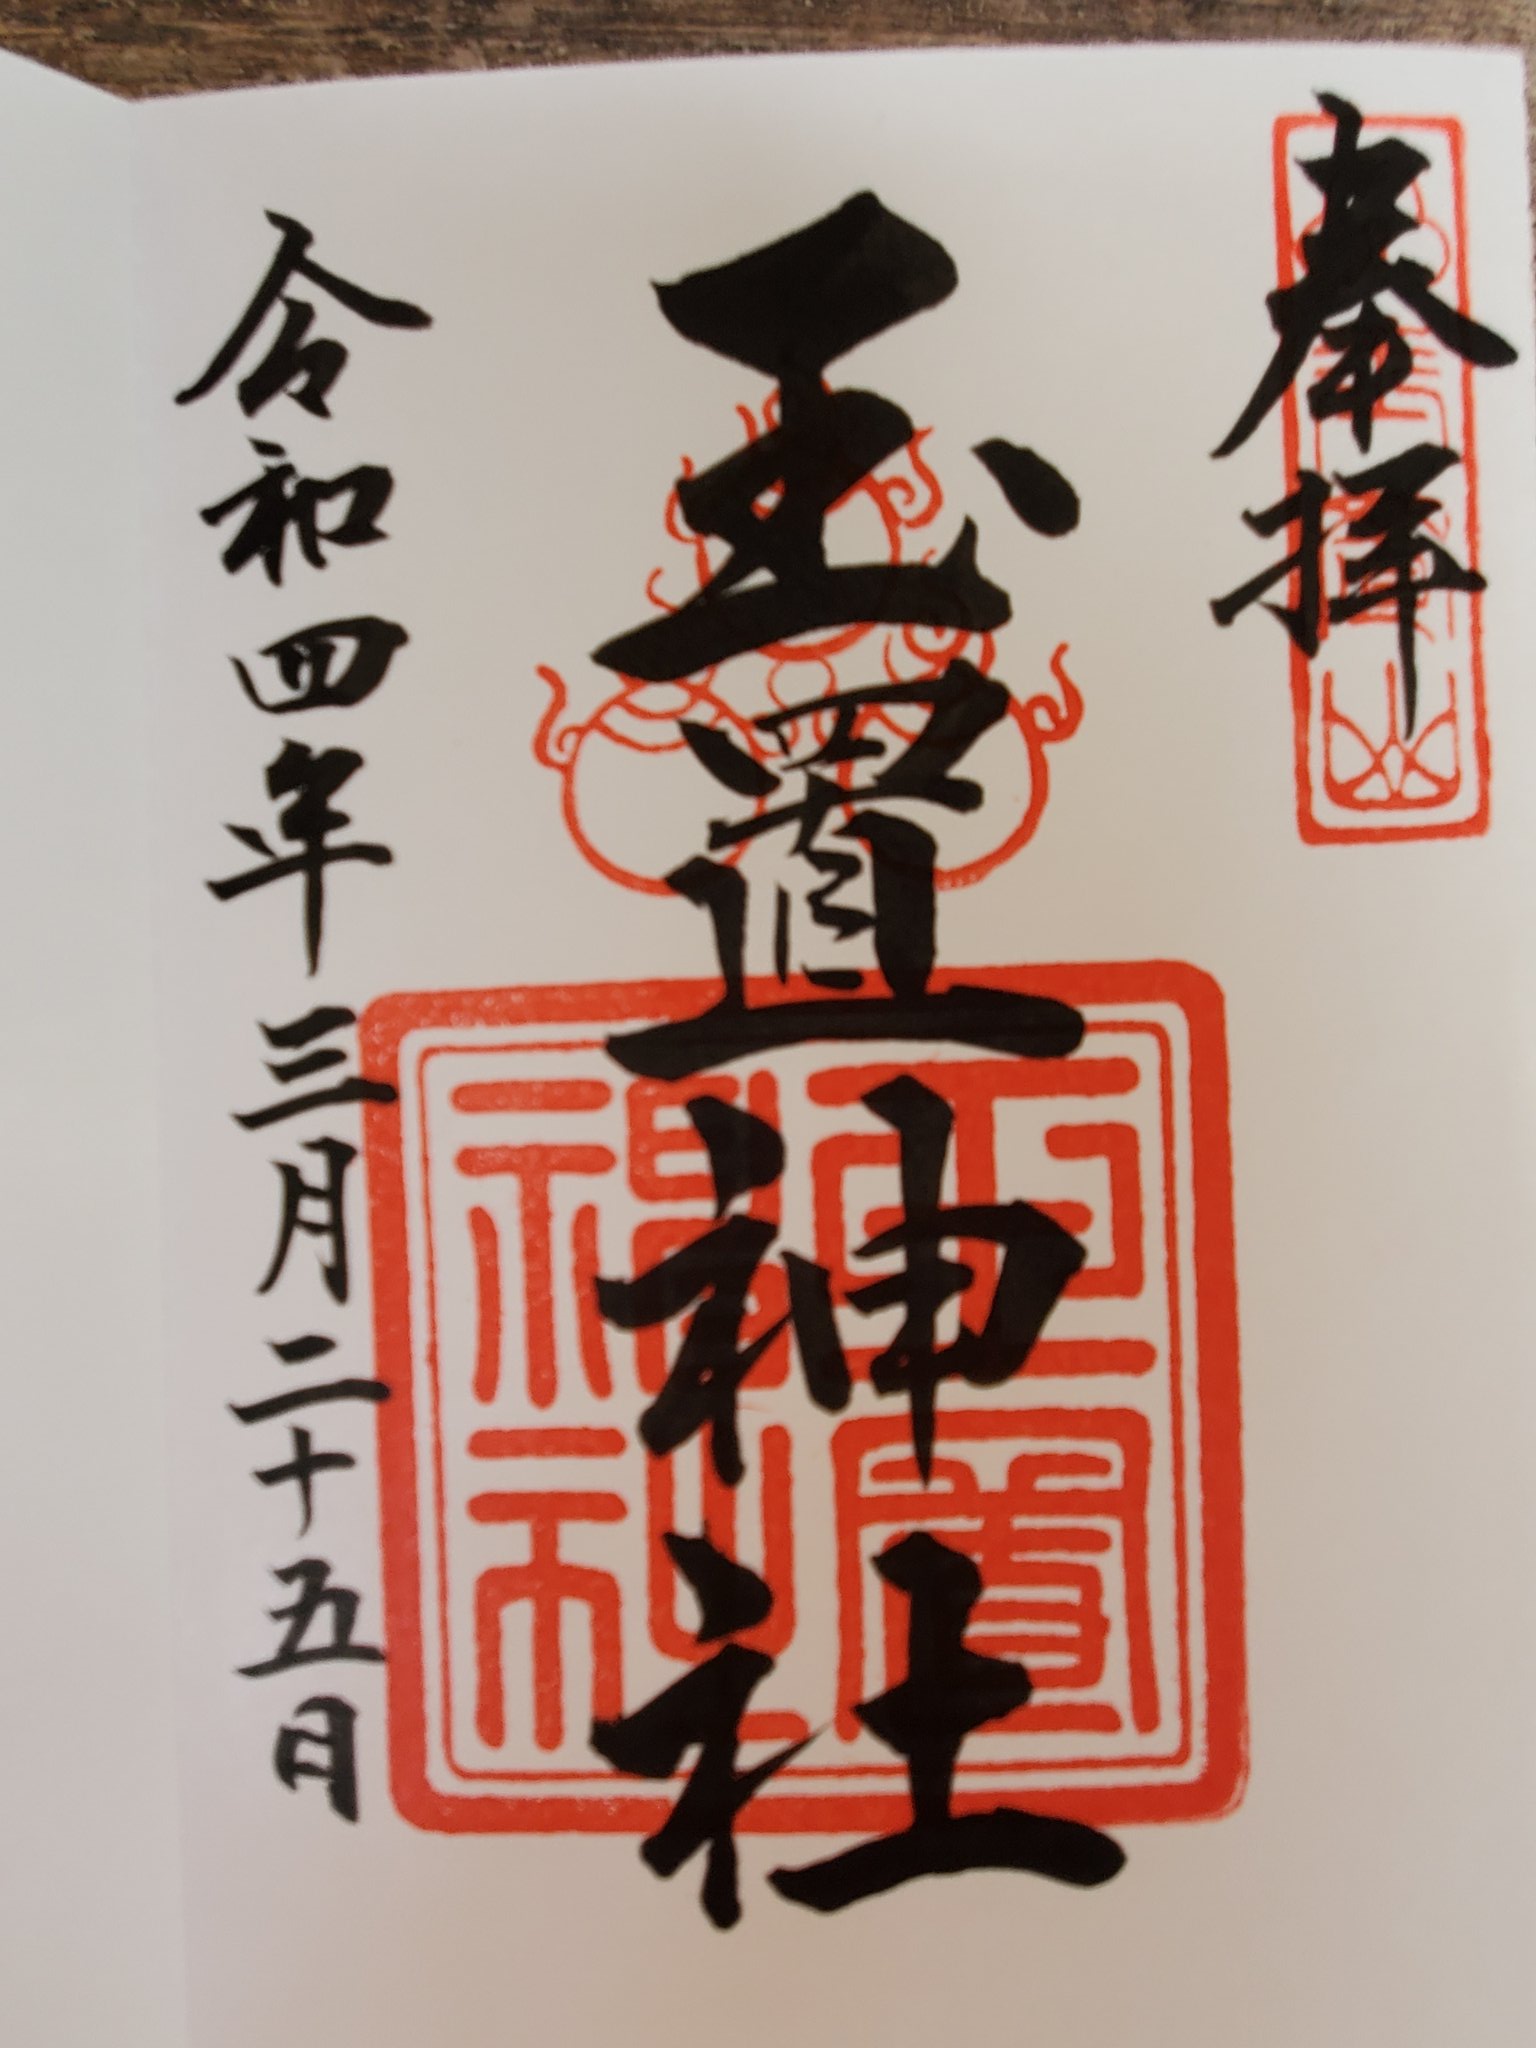 奉拝
玉置神社
令和四年三月二十五日